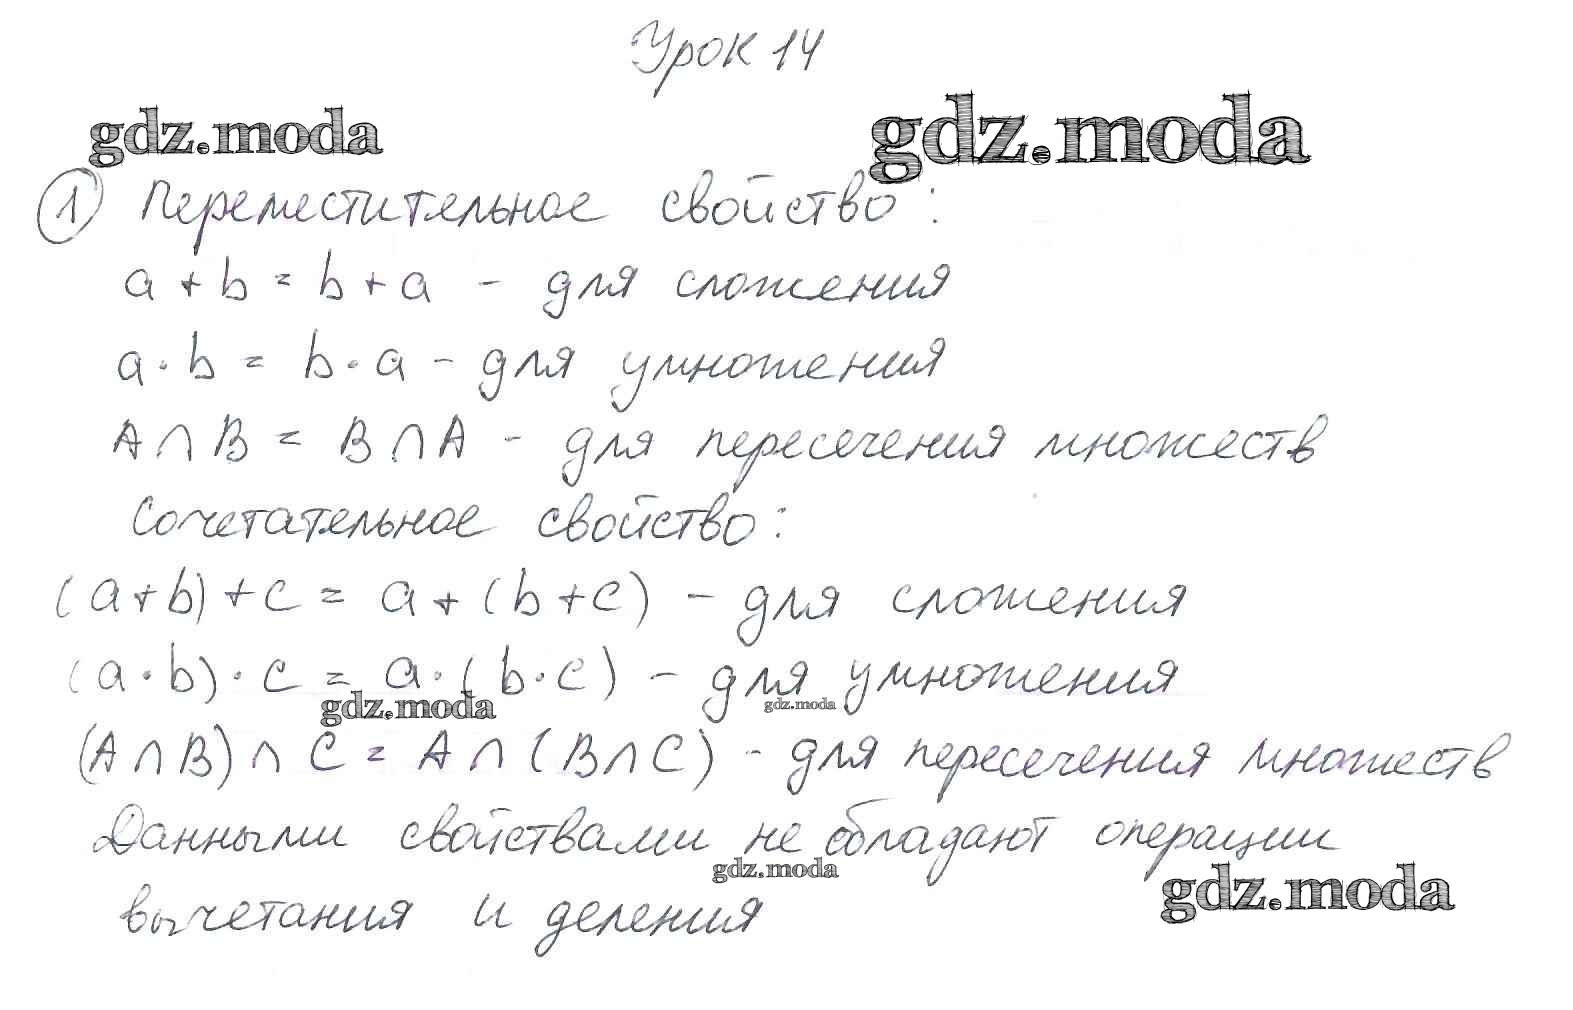 Урок 14
gdz.moda gdz.moda
1 Переместительное свойство:
a + b = b + a - для сложения
a · b = b · a - для умножения
A ∩ B = B ∩ A - для пересечения множеств
Сочетательное свойство:
(a+b)+c = a+(b+c) - для сложения
(a·b)·c = a·(b·c) - для умножения
gdz.moda gdz.moda
(A∩B)∩C = A∩(B∩C) - для пересечения множеств
Данными свойствами не обладают операции
gdz.moda gdz.moda
вычетания и деления